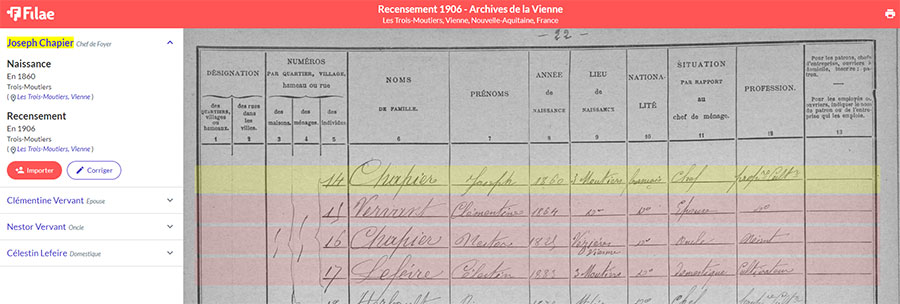 Filae
Recensement 1906 - Archives de la Vienne
Les Trois-Moutiers, Vienne, Nouvelle-Aquitaine, France
Joseph Chapier Chef de Foyer
Naissance
En 1860
Trois-Moutiers
( Les Trois-Moutiers, Vienne )
Recensement
En 1906
Trois-Moutiers
( Les Trois-Moutiers, Vienne )
Importer
Corriger
Clémentine Vervant Epouse
Nestor Vervant Oncle
Célestin Lefeire Domestique
- 22 -
DÉSIGNATION
des QUARTIERS, villages ou hameaux.
des rues dans les villes.
NUMÉROS
PAR QUARTIER, VILLAGE, hameau ou rue
des maisons.
des ménages.
des individus.
NOMS
DE FAMILLE.
PRÉNOMS.
ANNÉE
de
NAISSANCE
LIEU
de
NAISSANCE
NATIONA-
LITÉ
SITUATION
PAR RAPPORT
au
chef de ménage.
PROFESSION.
Pour les patrons, chefs d'entreprise, ouvriers à domicile, inscrire : patron.
Pour les employés ou ouvriers, indiquer le nom du patron ou de l'entreprise qui les emploie.
1 2 3 4 5 6 7 8 9 10 11 12 13
14 Chapier Joseph 1860 3 Moutiers française Chef
15 Vervant Clémentine 1864 do do Epouse do
16 Chapier Nestor 1825 do oncle
17 Lefeire Célestin 1883 3 Moutiers do domestique Cultivateur
18 Herbault